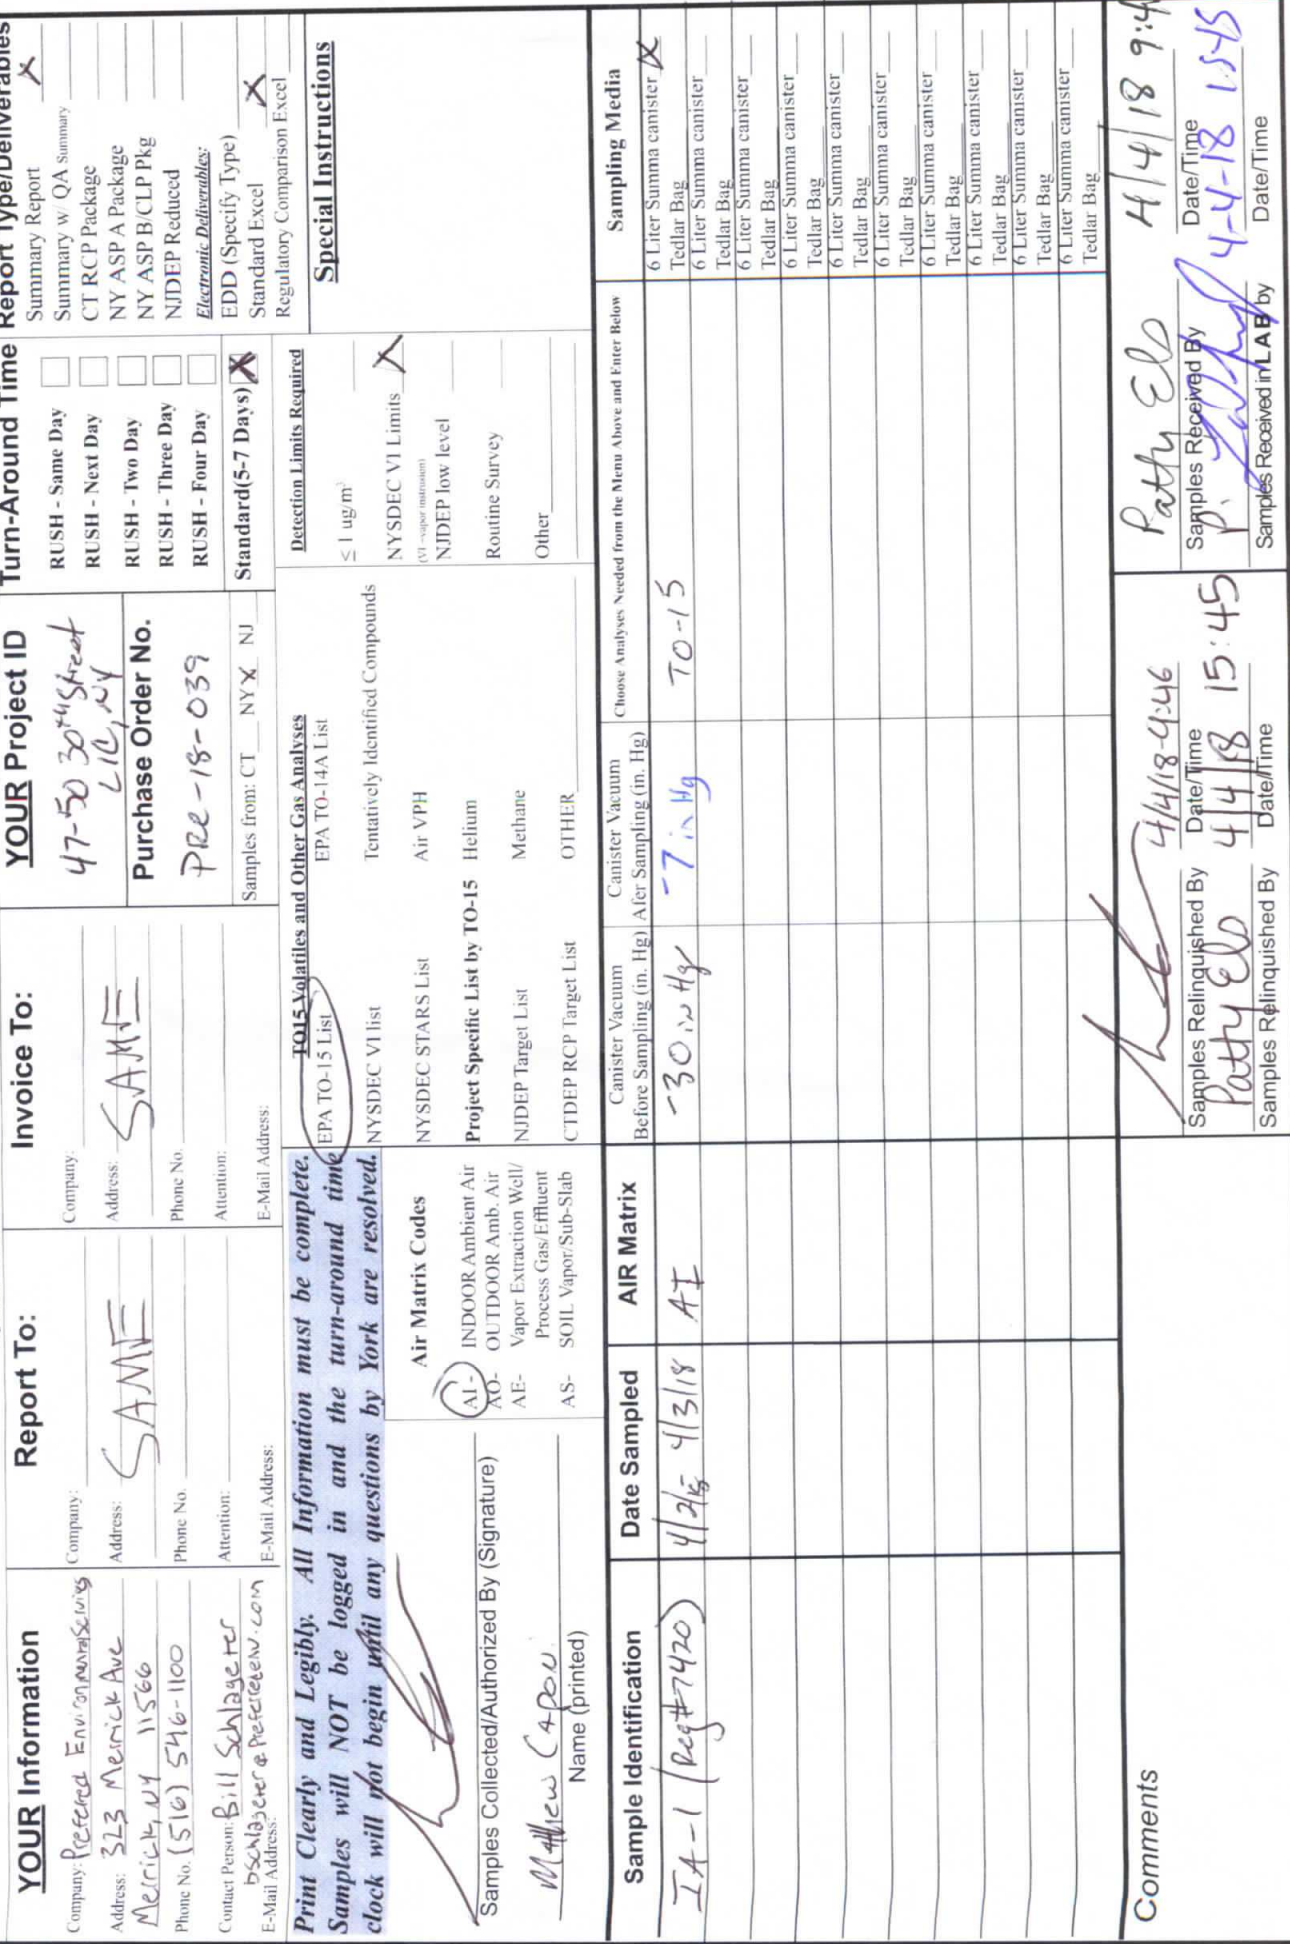 YOUR Information
Company: Preferred Environmental Services
Address: 323 Merrick Ave
Merrick, NY 11566
Phone No. (516) 546-1100
Contact Person: Bill Schlageter
bschlageter@preferredenv.com
E-Mail Address:
Report To:
Company:
Address: SAME
Phone No.
Attention:
E-Mail Address:
Invoice To:
Company:
Address: SAME
Phone No.
Attention:
E-Mail Address:
YOUR Project ID
47-50 30th Street
LIC, NY
Purchase Order No.
PRE-18-039
Samples from: CT NY X NJ
Turn-Around Time
RUSH - Same Day
RUSH - Next Day
RUSH - Two Day
RUSH - Three Day
RUSH - Four Day
Standard(5-7 Days) X
Report Type/Deliverables
Summary Report X
Summary w/ QA Summary
CT RCP Package
NY ASP A Package
NY ASP B/CLP Pkg
NJDEP Reduced
Electronic Deliverables:
EDD (Specify Type)
Standard Excel X
Regulatory Comparison Excel
Print Clearly and Legibly. All Information must be complete.
Samples will NOT be logged in and the turn-around time
clock will not begin until any questions by York are resolved.
Samples Collected/Authorized By (Signature)
Mathew Capon
Name (printed)
Air Matrix Codes
AI- INDOOR Ambient Air
AO- OUTDOOR Amb. Air
AE- Vapor Extraction Well/
Process Gas/Effluent
AS- SOIL Vapor/Sub-Slab
TO15 Volatiles and Other Gas Analyses
EPA TO-15 List EPA TO-14A List
NYSDEC VI list Tentatively Identified Compounds
NYSDEC STARS List Air VPH
Project Specific List by TO-15 Helium
NJDEP Target List Methane
CTDEP RCP Target List OTHER
Detection Limits Required
≤ 1 ug/m³
NYSDEC VI Limits X
(VI =vapor instrusion)
NJDEP low level
Routine Survey
Other
Special Instructions
Sample Identification
Date Sampled
AIR Matrix
Canister Vacuum
Before Sampling (in. Hg)
Canister Vacuum
Afer Sampling (in. Hg)
Choose Analyses Needed from the Menu Above and Enter Below
Sampling Media
IA-1 (Reg#7420) 4/2/18- 4/3/18 AI -30 in Hg -7 in Hg TO-15
6 Liter Summa canister X
Tedlar Bag
6 Liter Summa canister
Tedlar Bag
6 Liter Summa canister
Tedlar Bag
6 Liter Summa canister
Tedlar Bag
6 Liter Summa canister
Tedlar Bag
6 Liter Summa canister
Tedlar Bag
6 Liter Summa canister
Tedlar Bag
6 Liter Summa canister
Tedlar Bag
6 Liter Summa canister
Tedlar Bag
6 Liter Summa canister
Tedlar Bag
Comments
4/4/18-9:46
Samples Relinquished By Date/Time
Patty Elo 4/4/18 15:45
Samples Relinquished By Date/Time
Patty Elo 4/4/18 9:4
Samples Received By Date/Time
4-4-18 1545
Samples Received in LAB by Date/Time